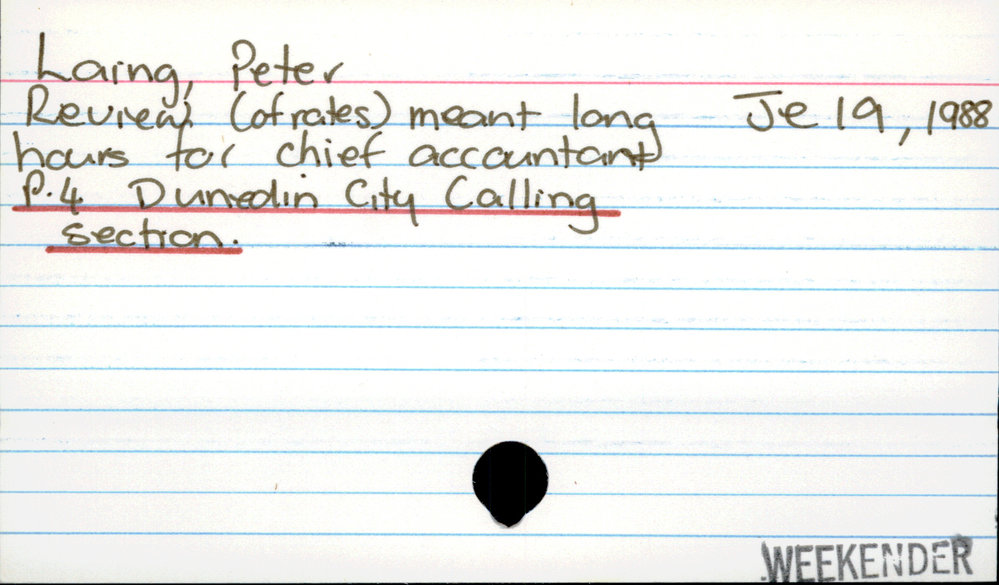 Laing, Peter
Review (of rates) meant long Je 19, 1988
hours for chief accountant
P.4 Dunedin City Calling
section.
WEEKENDER